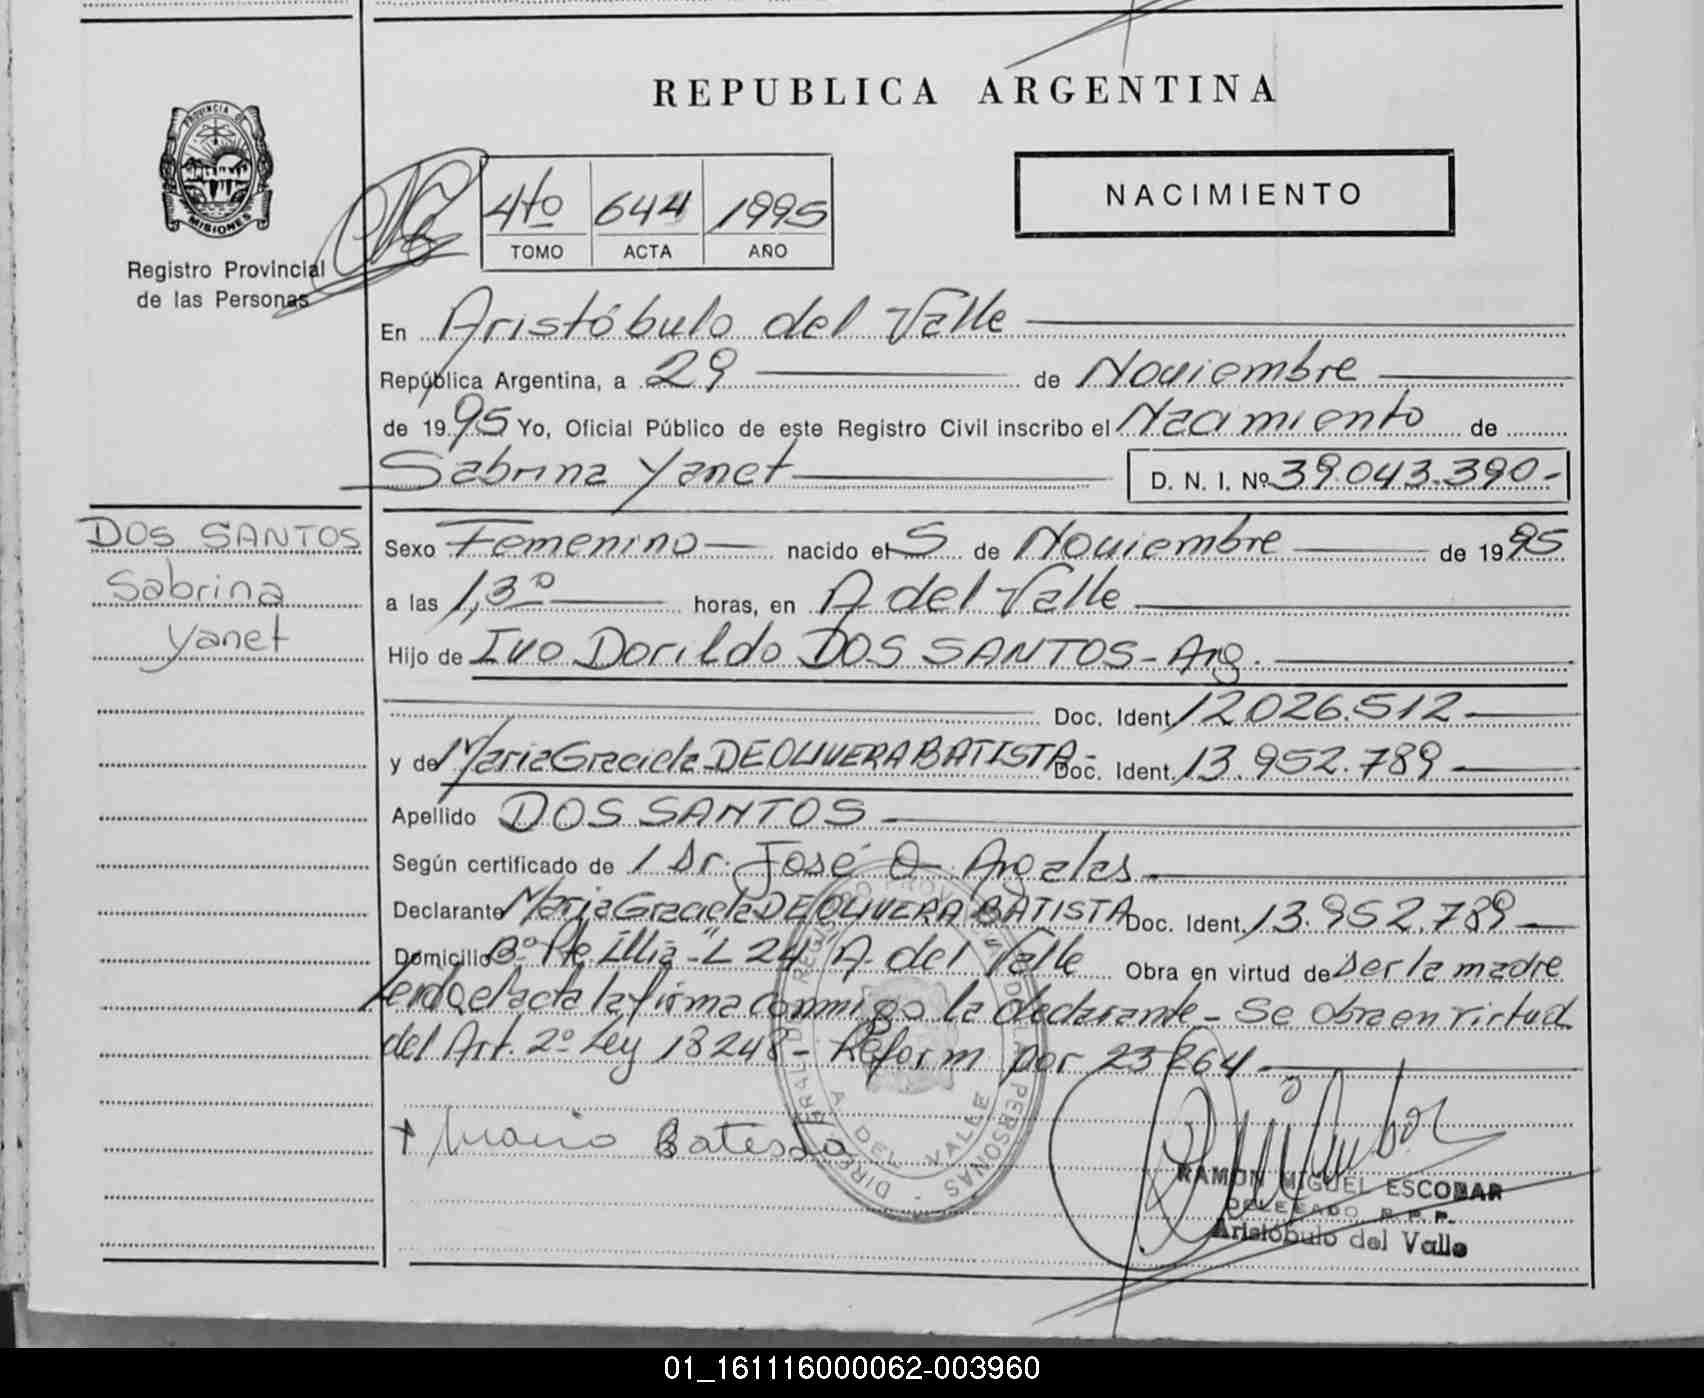 REPUBLICA ARGENTINA
PROVINCIA DE
MISIONES
Registro Provincial
de las Personas
4to 644 1995
TOMO ACTA AÑO
NACIMIENTO
En Aristóbulo del Valle
República Argentina, a 29 de Noviembre
de 1995 Yo, Oficial Público de este Registro Civil inscribo el Nacimiento de
Sabrina Yanet D. N. I. Nº 39.043.390.-
DOS SANTOS
Sabrina
Yanet
Sexo Femenino nacido el 5 de Noviembre de 1995
a las 1,3º horas, en A del Valle
Hijo de Ivo Dorildo DOS SANTOS - Arg.
Doc. Ident. 12.026.512
y de Maria Graciela DE OLIVERA BATISTA - Doc. Ident. 13.952.789
Apellido DOS SANTOS
Según certificado de / Dr. José O Argalas
Declarante Maria Graciela DE OLIVERA BATISTA Doc. Ident. 13.952.789
Domicilio Bº Pte Illia - L 24 A. del Valle Obra en virtud de ser la madre
Leida el acta la firma conmigo la declarante - Se obra en virtud
del Art. 2º Ley 18248 - Reform por 23264
DIRE RAL D REGIS O PROVI DE LA PERSONAS
A DEL VALLE
+ Batista
RAMON MIGUEL ESCOBAR
DELEGADO R. P. P.
Aristóbulo del Valle
01_161116000062-003960